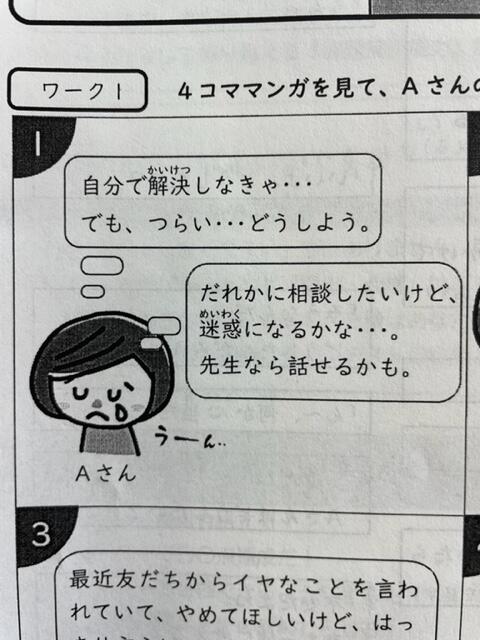 ワーク1
4コママンガを見て、Aさんの
1
自分で解決しなきゃ・・・
かいけつ
でも、つらい・・・どうしよう。
だれかに相談したいけど、
迷惑になるかな・・・。
めいわく
先生なら話せるかも。
うーん‥
Aさん
3
最近友だちからイヤなことを言わ
れていて、やめてほしいけど、はっ